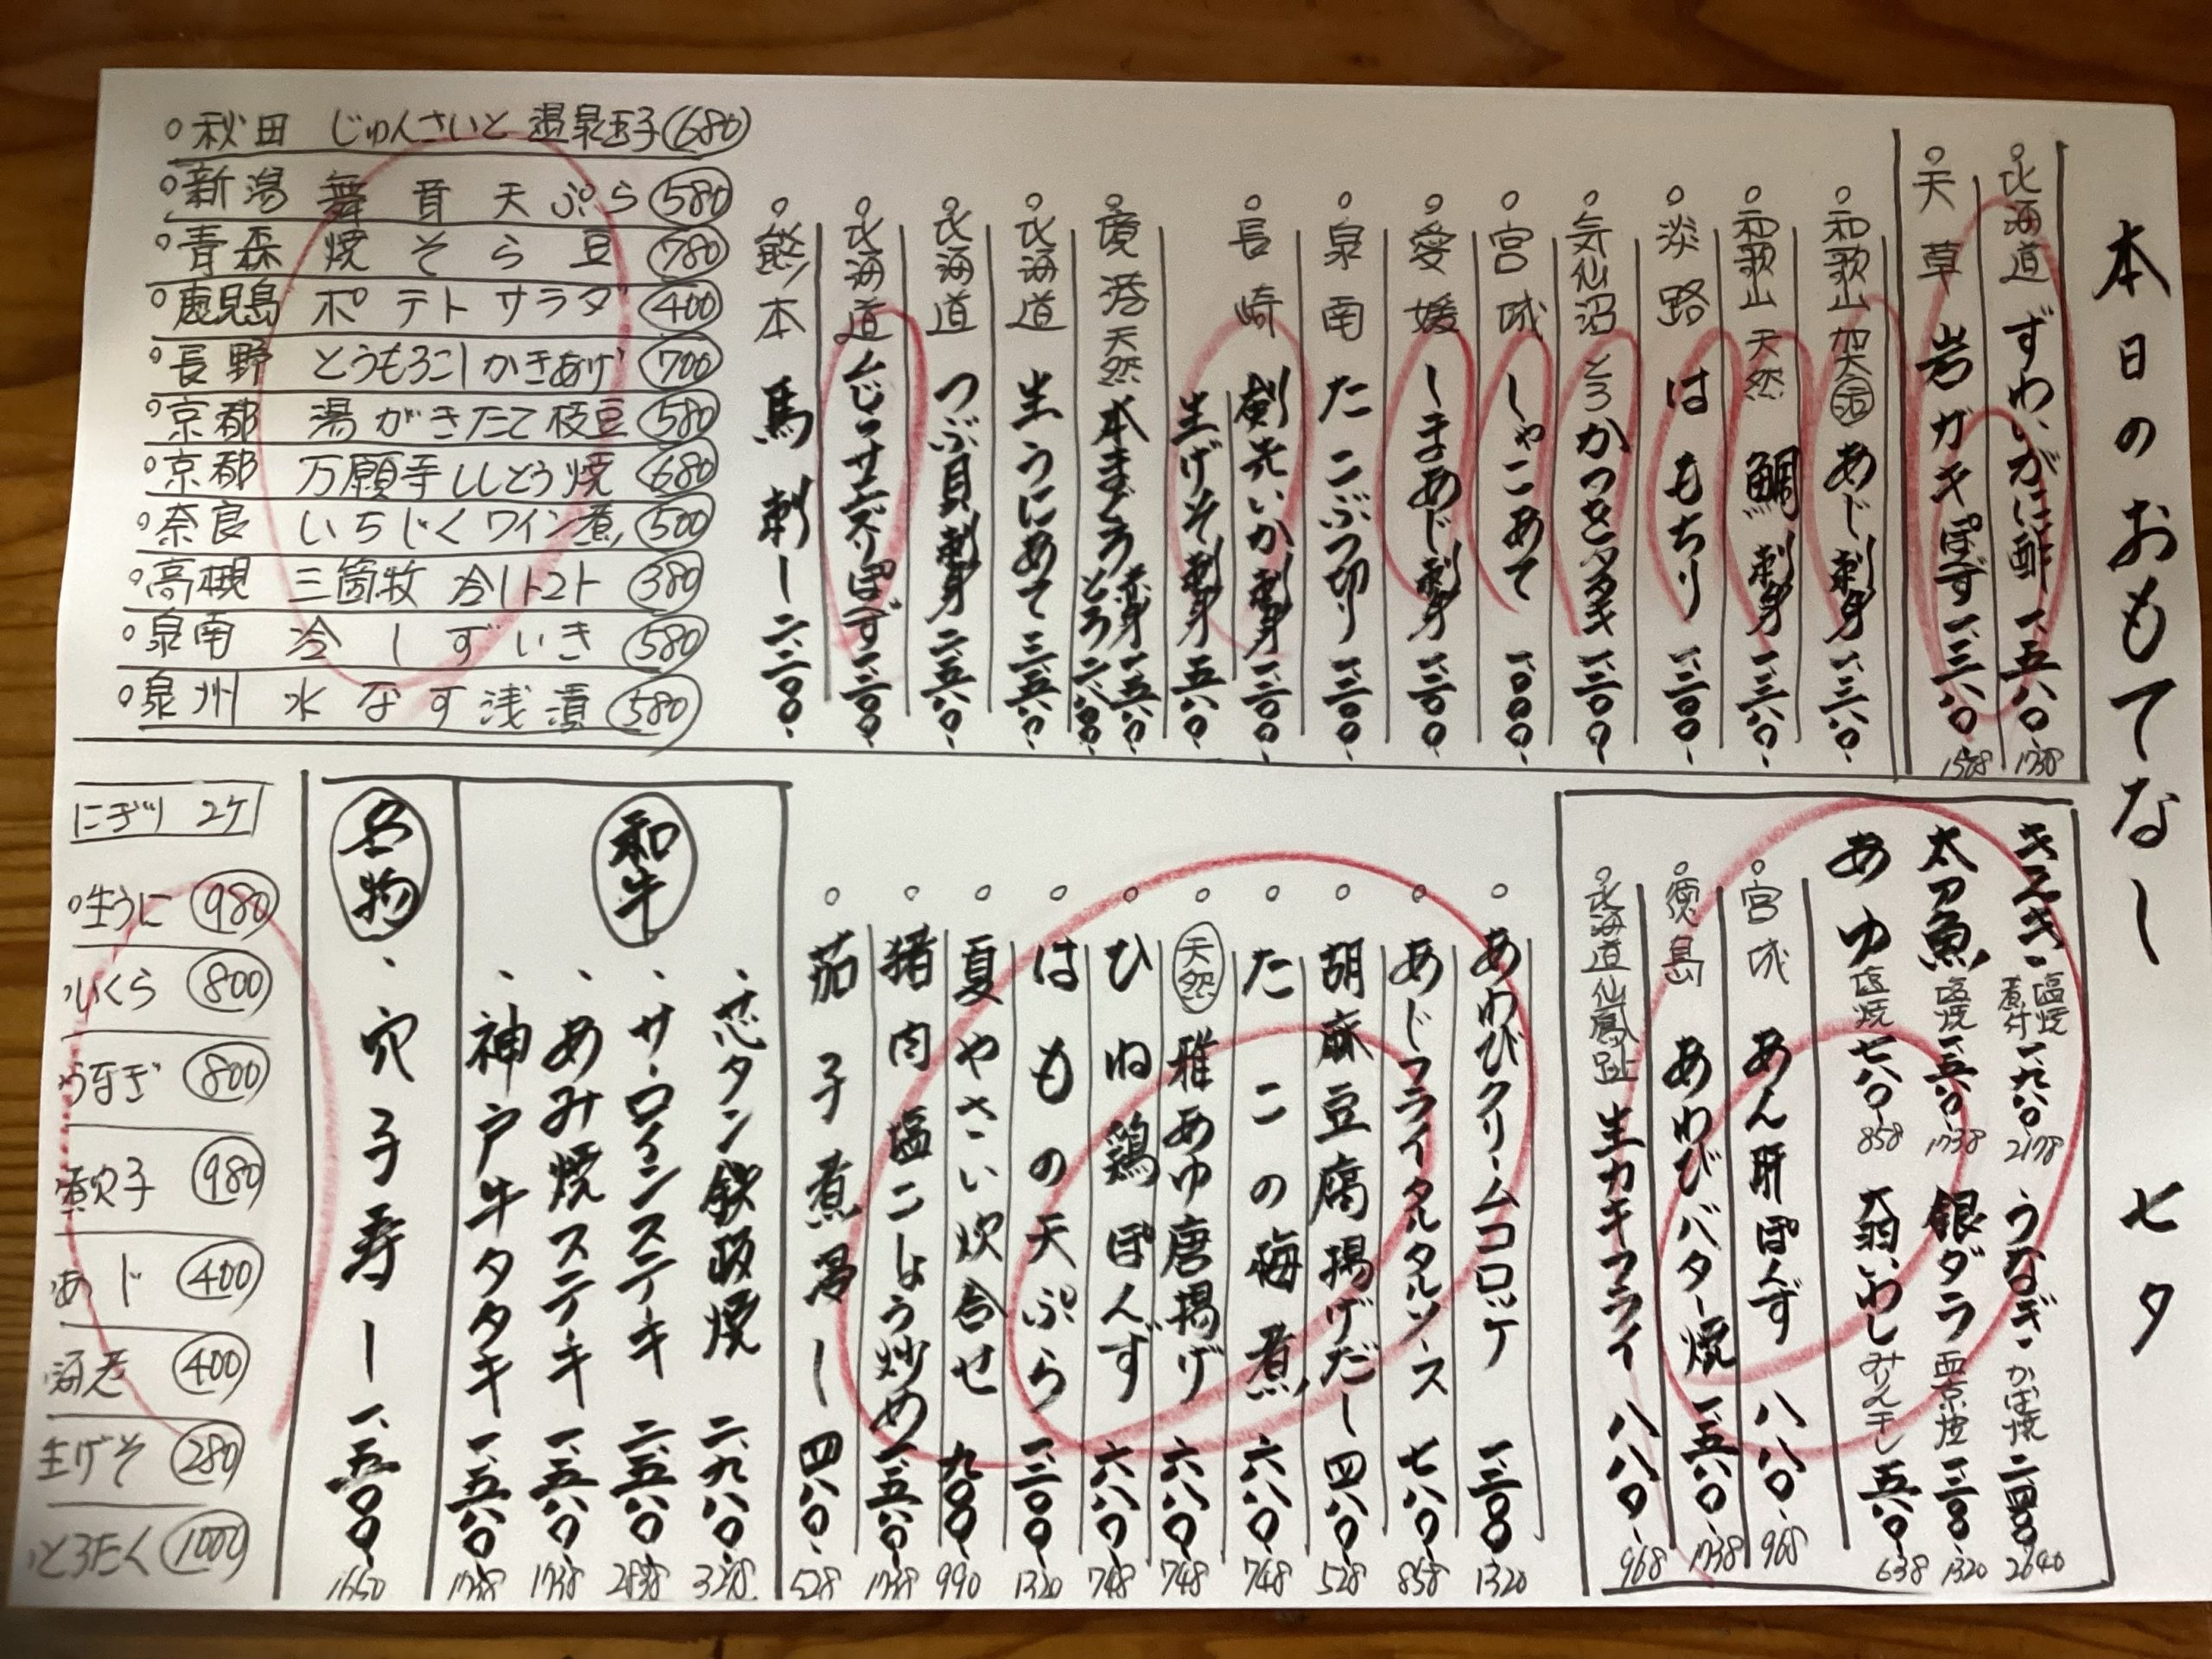 本日のおもてなし 七夕
北海道 ずわいがに酢 一、五八〇 1738
天草 岩ガキぽず 一、三八〇 1518
和歌山 加太 活 あじ刺身 一、三八〇
和歌山 天然 鯛刺身 一、三八〇
淡路 はもちり 一、二〇〇
気仙沼 とろかつをタタキ 一、二〇〇
宮城 しゃこあて 一、〇〇〇
愛媛 しまあじ刺身 一、二〇〇
泉南 たこぶつ切り 一、二〇〇
長崎 剣先いか刺身 一、二〇〇
生げそ刺身 五八〇
境港 天然 本まぐろ 赤身 一、五八〇
とろ 二、八〇〇
北海道 生うにあて 三、五八〇
北海道 つぶ貝刺身 二、五八〇
北海道 むしサエズリぽず 一、二〇〇
熊本 馬刺し 二、二〇〇
秋田 じゅんさいと温泉玉子 680
新潟 舞茸天ぷら 580
青森 焼そら豆 780
鹿児島 ポテトサラダ 400
長野 とうもろこしかきあげ 700
京都 湯がきたて枝豆 580
京都 万願寺ししとう焼 680
奈良 いちじくワイン煮 500
高槻 三箇牧 冷しトマト 380
泉南 冷しずいき 580
泉州 水なす浅漬 580
キスキ 塩焼 煮付 一、九八〇 2178 うなぎ かば焼 二、四〇〇 2640
太刀魚 塩焼 一、五八〇 1738 銀ダラ 西京焼 一、二〇〇 1320
あゆ 塩焼 七八〇 858 大羽いわし みりん干し 五八〇 638
宮城 あん肝ぽんず 八八〇 968
徳島 あわびバター焼 一、五八〇 1738
北海道仙鳳趾 生カキフライ 八八〇 968
あわびクリームコロッケ 一、二〇〇 1320
あじフライタルタルソース 七八〇 858
胡麻豆腐揚げだし 四八〇 528
たこの梅煮 六八〇 748
天然 稚あゆ唐揚げ 六八〇 748
ひね鶏ぽんず 六八〇 748
はもの天ぷら 一、二〇〇 1320
夏やさい炊合せ 九〇〇 990
猪肉塩こしょう炒め 一、五八〇 1738
茄子煮浸し 四八〇 528
和牛
芯タン鉄板焼 二、九八〇 3278
サーロインステーキ 二、五八〇 2838
あみ焼ステーキ 一、五八〇 1738
神戸牛タタキ 一、五八〇 1738
名物
穴子寿し 一、五〇〇 1650
にぎり 2ケ
生うに 980
いくら 800
うなぎ 800
煮穴子 980
あじ 400
海老 400
生げそ 280
とろたく 1000